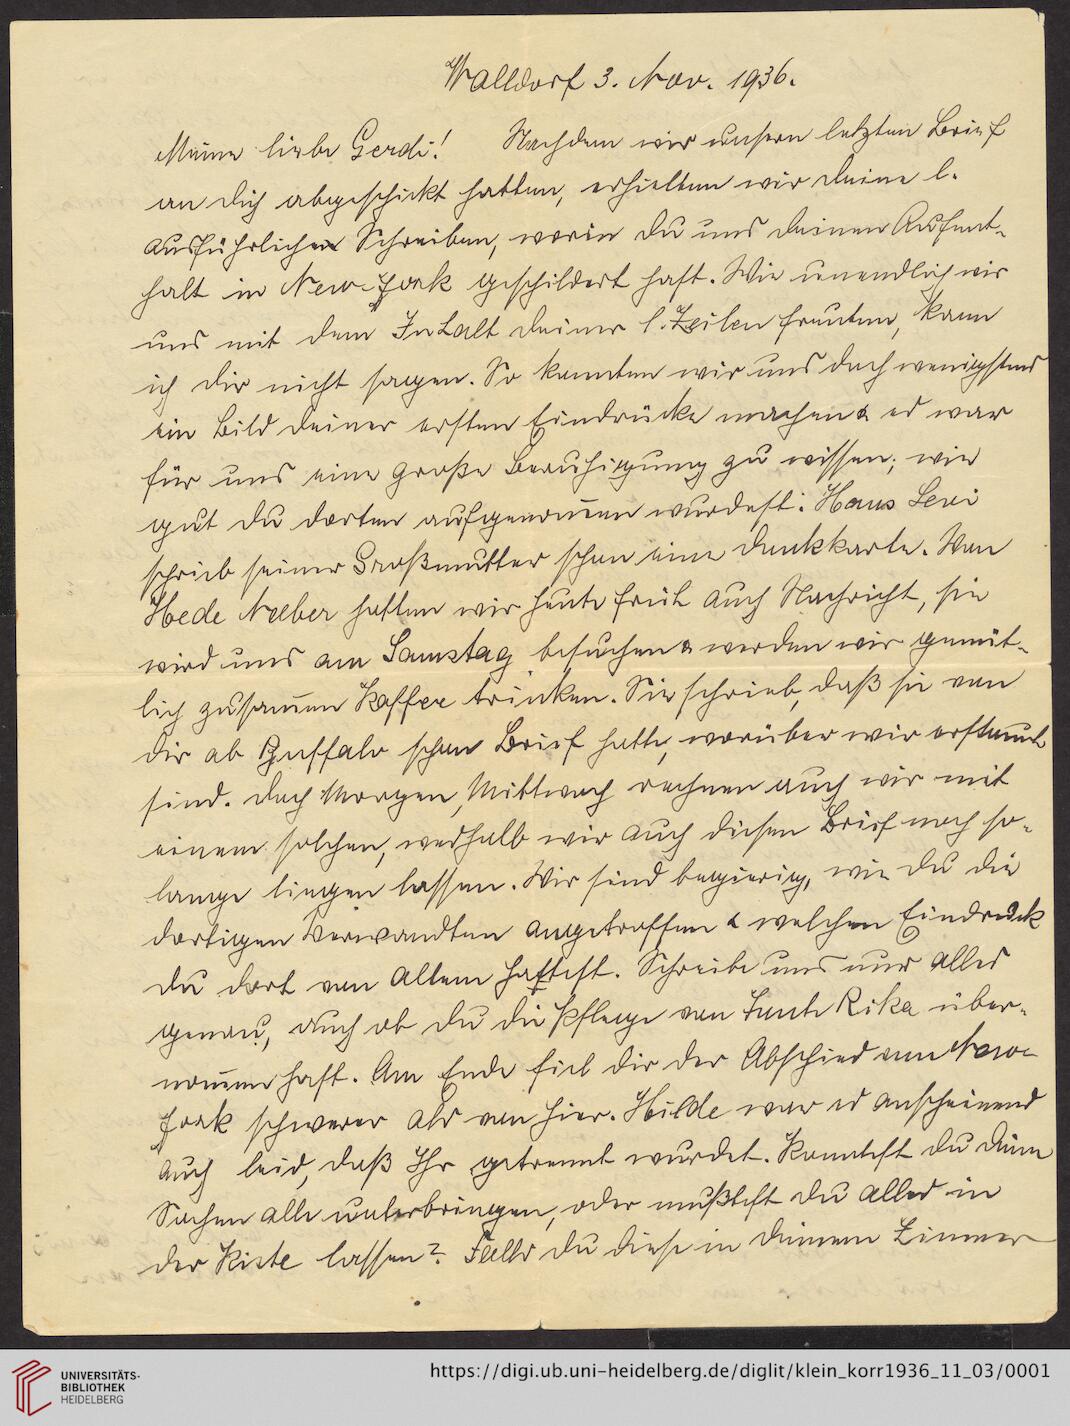 Walldorf 3. Nov. 1936.
Meine liebe Gerdi! Nachdem wir unsern letzten Brief
an dich abgeschickt hatten, erhielten wir deine l.
ausführlichen Schreiben, worin du uns deinen Aufent-
halt in New-York geschildert hast. Wie unendlich wir
uns mit dem Inhalt deiner l. Zeilen freuten, kann
ich dir nicht sagen. So konnten wir uns doch wenigstens
ein Bild deiner ersten Eindrücke machen & es war
für uns eine große Beruhigung zu wissen, wie
gut du dorten aufgenom̅en wurdest. Hans Levi
schrieb seiner Großmutter schon eine Dankkarte. Von
Hede Neeber hatten wir heute früh auch Nachricht, sie
wird uns am Samstag besuchen & werden wir gemüt-
lich zusam̅en Kaffee trinken. Sie schrieb, daß sie von
dir ab Buffalo schon Brief hatte, worüber wir erstaunt
sind. doch Morgen, Mittwoch rechnen auch wir mit
einem solchen, weshalb wir auch diesen Brief noch so-
lange liegen lassen. Wir sind begierig, wie du die
dortigen Verwandten angetroffen & welchen Eindruck
du dort von Allem hattest. Schreibe uns nur alles
genau, auch ob du die Pflege von Tante Rika über-
nom̅en hast. Am Ende fiel dir der Abschied von New-
York schwerer als von hier. Hilde war es anscheinend
auch leid, daß Ihr getrennt wurdet. Konntest du deine
Sachen alle unterbringen, oder mußtest du alles in
der Kiste lassen? Falls du diese in deinem Zimmer
UNIVERSITÄTS-
BIBLIOTHEK
HEIDELBERG
https://digi.ub.uni-heidelberg.de/diglit/klein_korr1936_11_03/0001